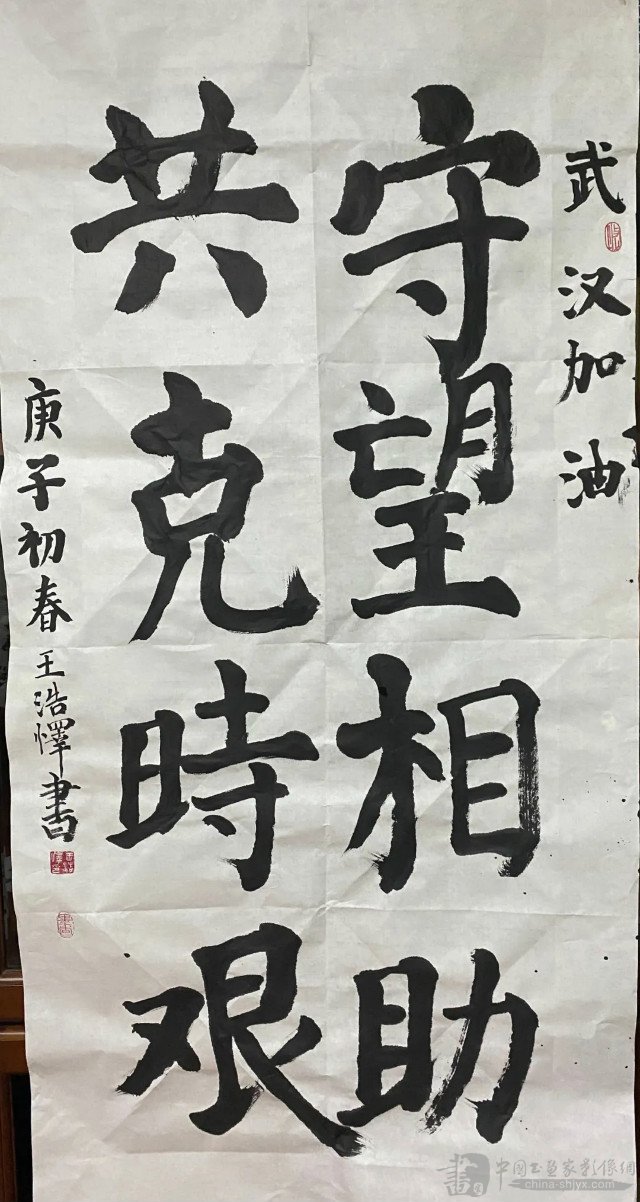 武汉加油
守望相助
共克時艰
庚子初春王浩懌書
中國书画家影像網
china-shjyx.com